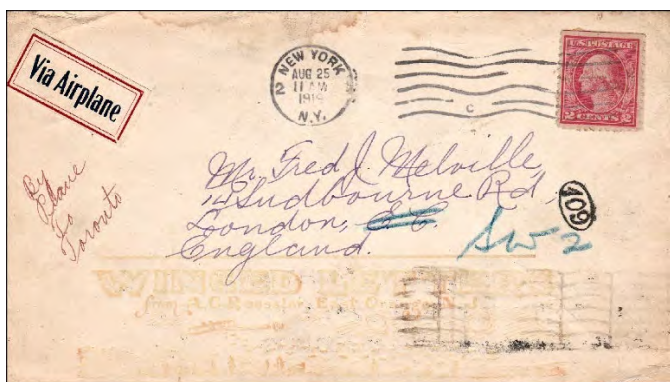 Via Airplane
2 NEW YORK
AUG 25
11 AM
1919
N.Y.
C
2 CENTS 2
By
Plane
to
Toronto
Mr. Fred J. Melville,
14 Sudbourne Rd,
London, E.C.
England.
SW2
409
WINGED LETTERS
from A.C. Roessler, East Orange, N.J.